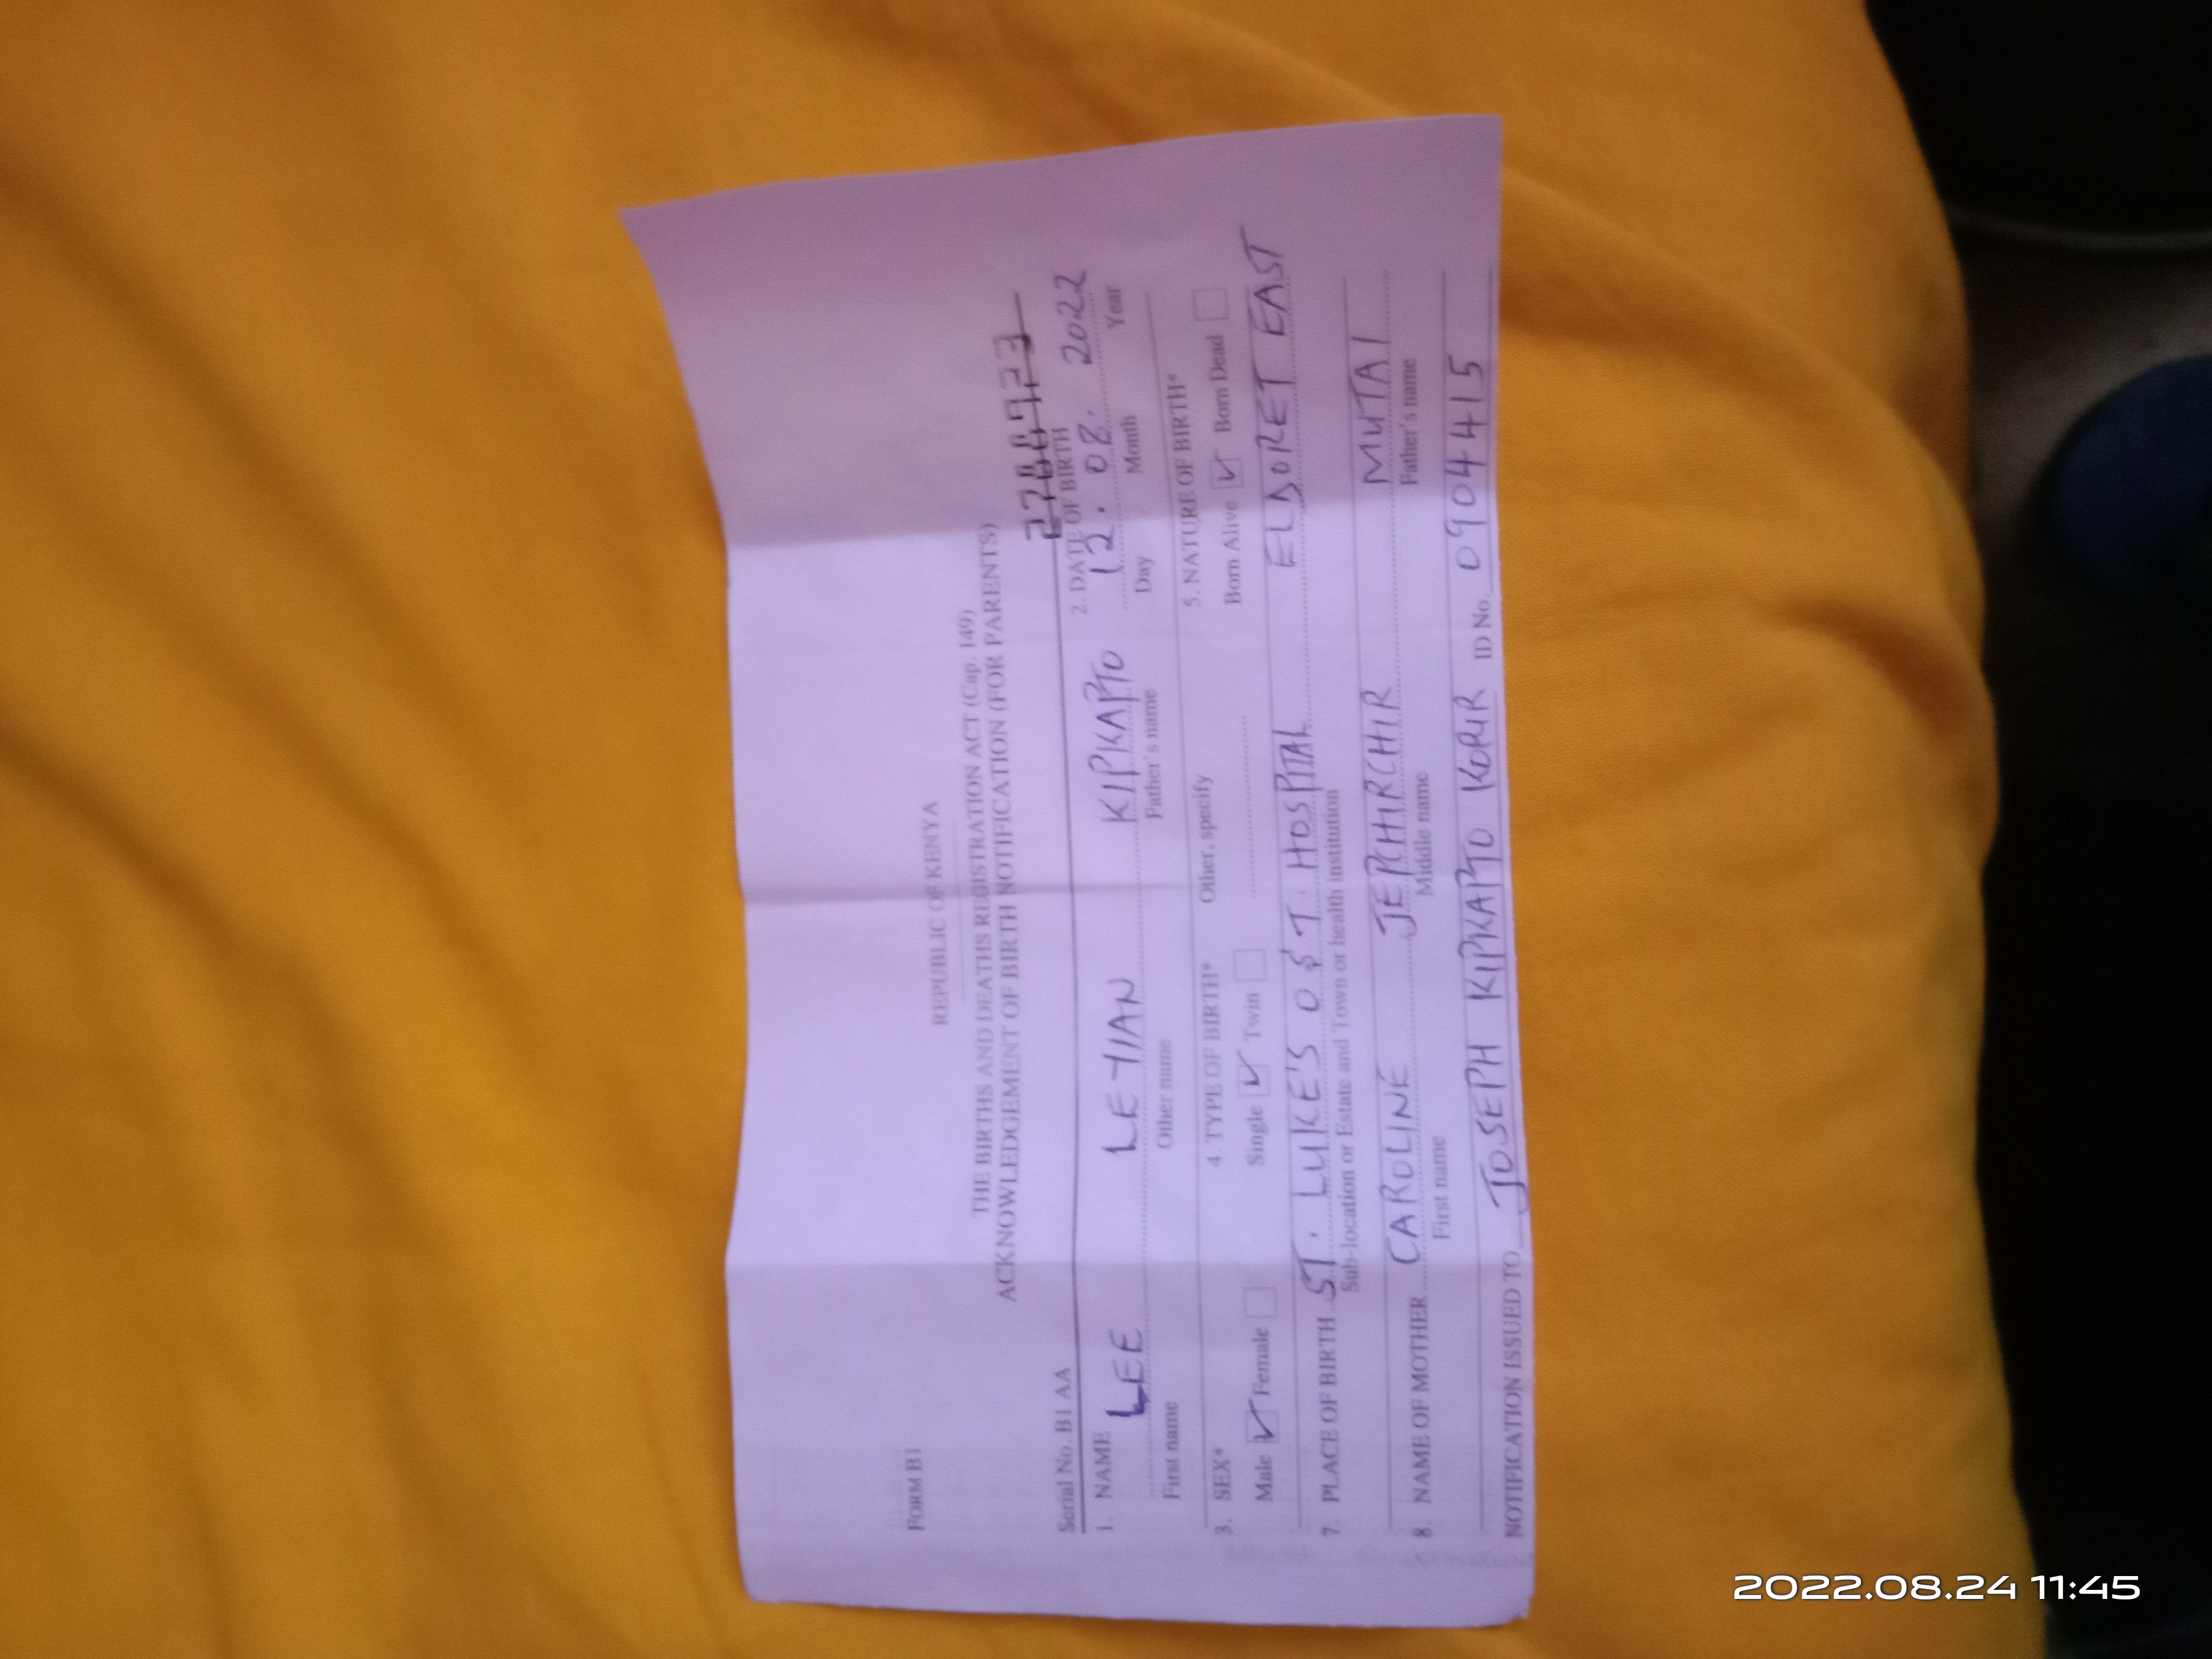 REPUBLIC OF KENYA
FORM B1
THE BIRTHS AND DEATHS REGISTRATION ACT (Cap. 149)
ACKNOWLEDGEMENT OF BIRTH NOTIFICATION (FOR PARENTS)
Serial No. B1 AA
1. NAME LEE LEYIAN KIPKAPTO
First name Other name Father's name
2. DATE OF BIRTH
12. 08. 2022
Day Month Year
3. SEX*
Male ✓ Female
4. TYPE OF BIRTH*
Single ✓ Twin
Other, specify
5. NATURE OF BIRTH*
Born Alive ✓ Born Dead
7. PLACE OF BIRTH ST. LUKE'S O $ T. HOSPITAL ELDORET EAST
Sub-location or Estate and Town or health institution
8. NAME OF MOTHER CAROLINE JEPCHIRCHIR MUTAI
First name Middle name Father's name
NOTIFICATION ISSUED TO JOSEPH KIPKAPTO KORIR ID No. 0904415
2022.08.24 11:45